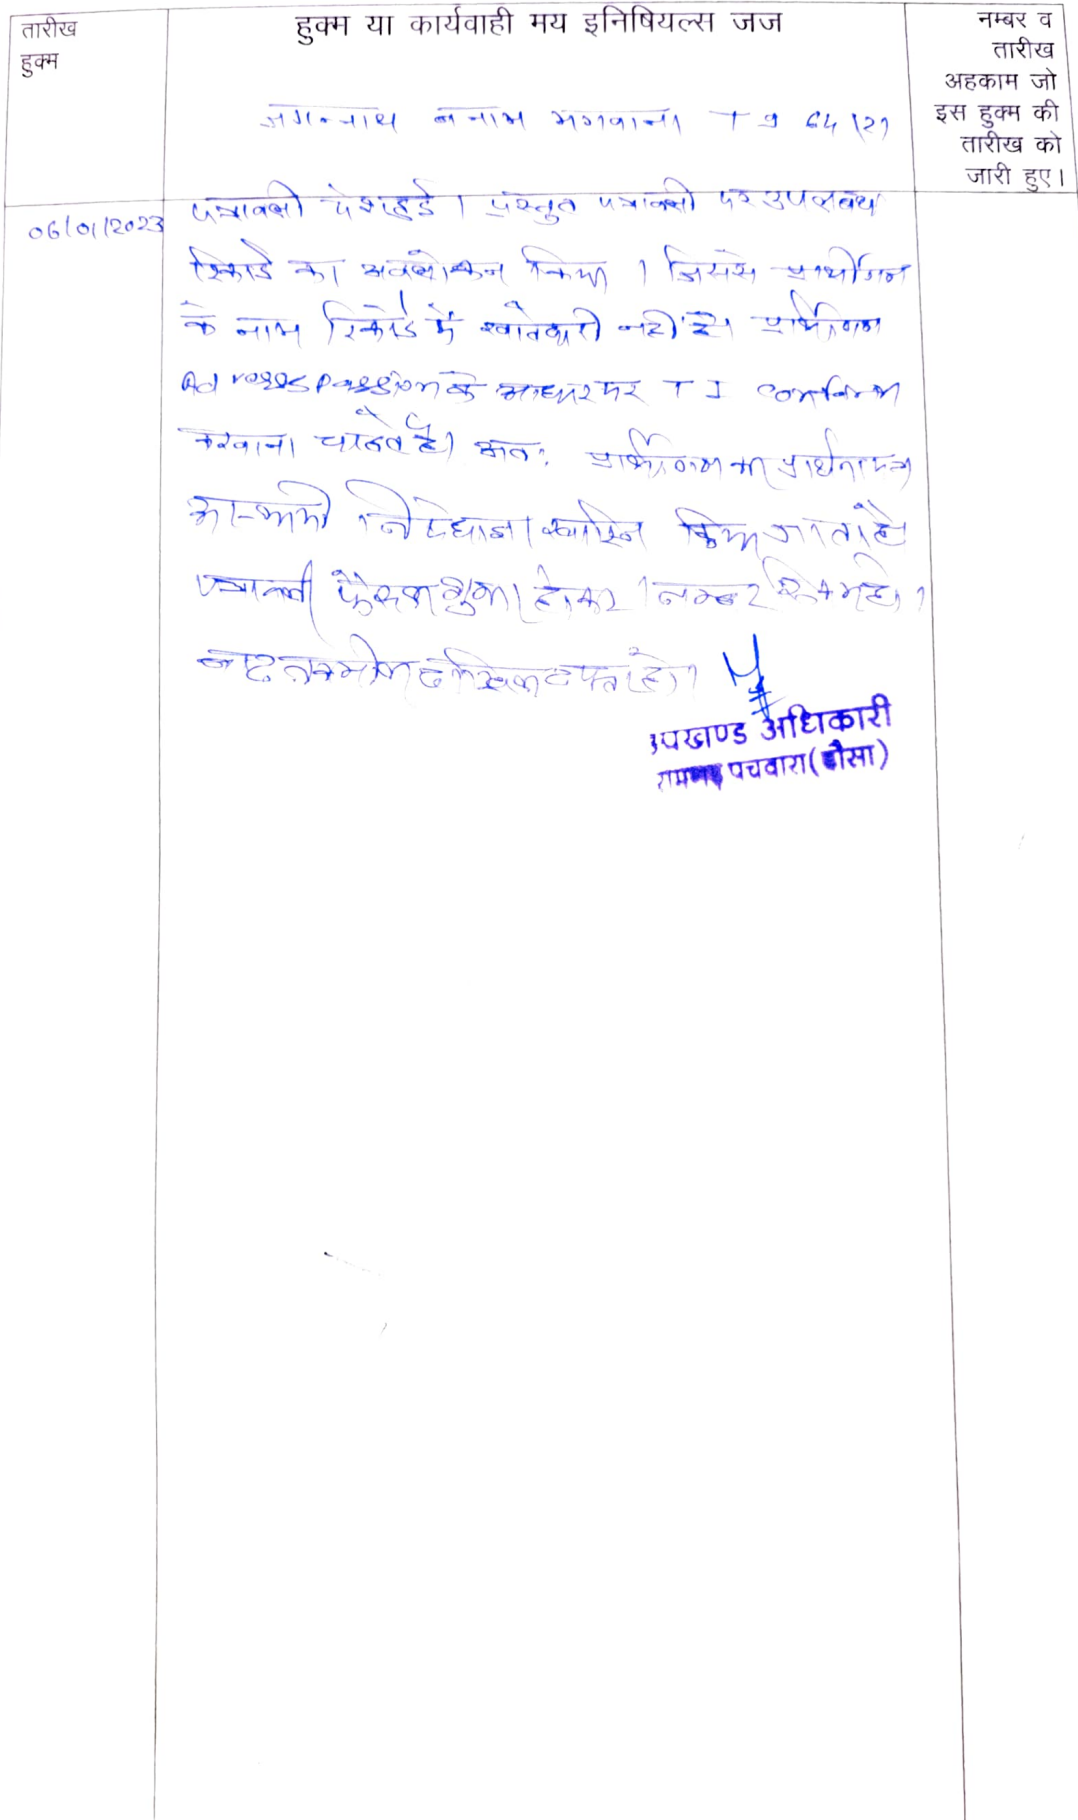 तारीख
हुक्म
हुक्म या कार्यवाही मय इनिषियल्स जज
नम्बर व
तारीख
अहकाम जो
इस हुक्म की
तारीख को
जारी हुए।
जगन्नाथ बनाम भगवाना T 9 64/21
06/01/2023
पत्रावली पेश हुई। प्रस्तुत पत्रावली पर उपलब्ध
रिकार्ड का अवलोकन किया। जिससे प्रार्थीगण
के नाम रिकोर्ड में खातेदारी नही है। प्रार्थीगण
के आधार पर T I
करवाना चाहते है। अतः प्रार्थीगण का प्रार्थना पत्र
अस्थायी निषेधाज्ञा खारिज किया जाता है
पत्रावली फैसल शुमार होकर नम्बर से कम हो।
बाद तकमील दाखिल दफ्तर हो।
उपखण्ड अधिकारी
रामगढ़ पचवारा (दौसा)